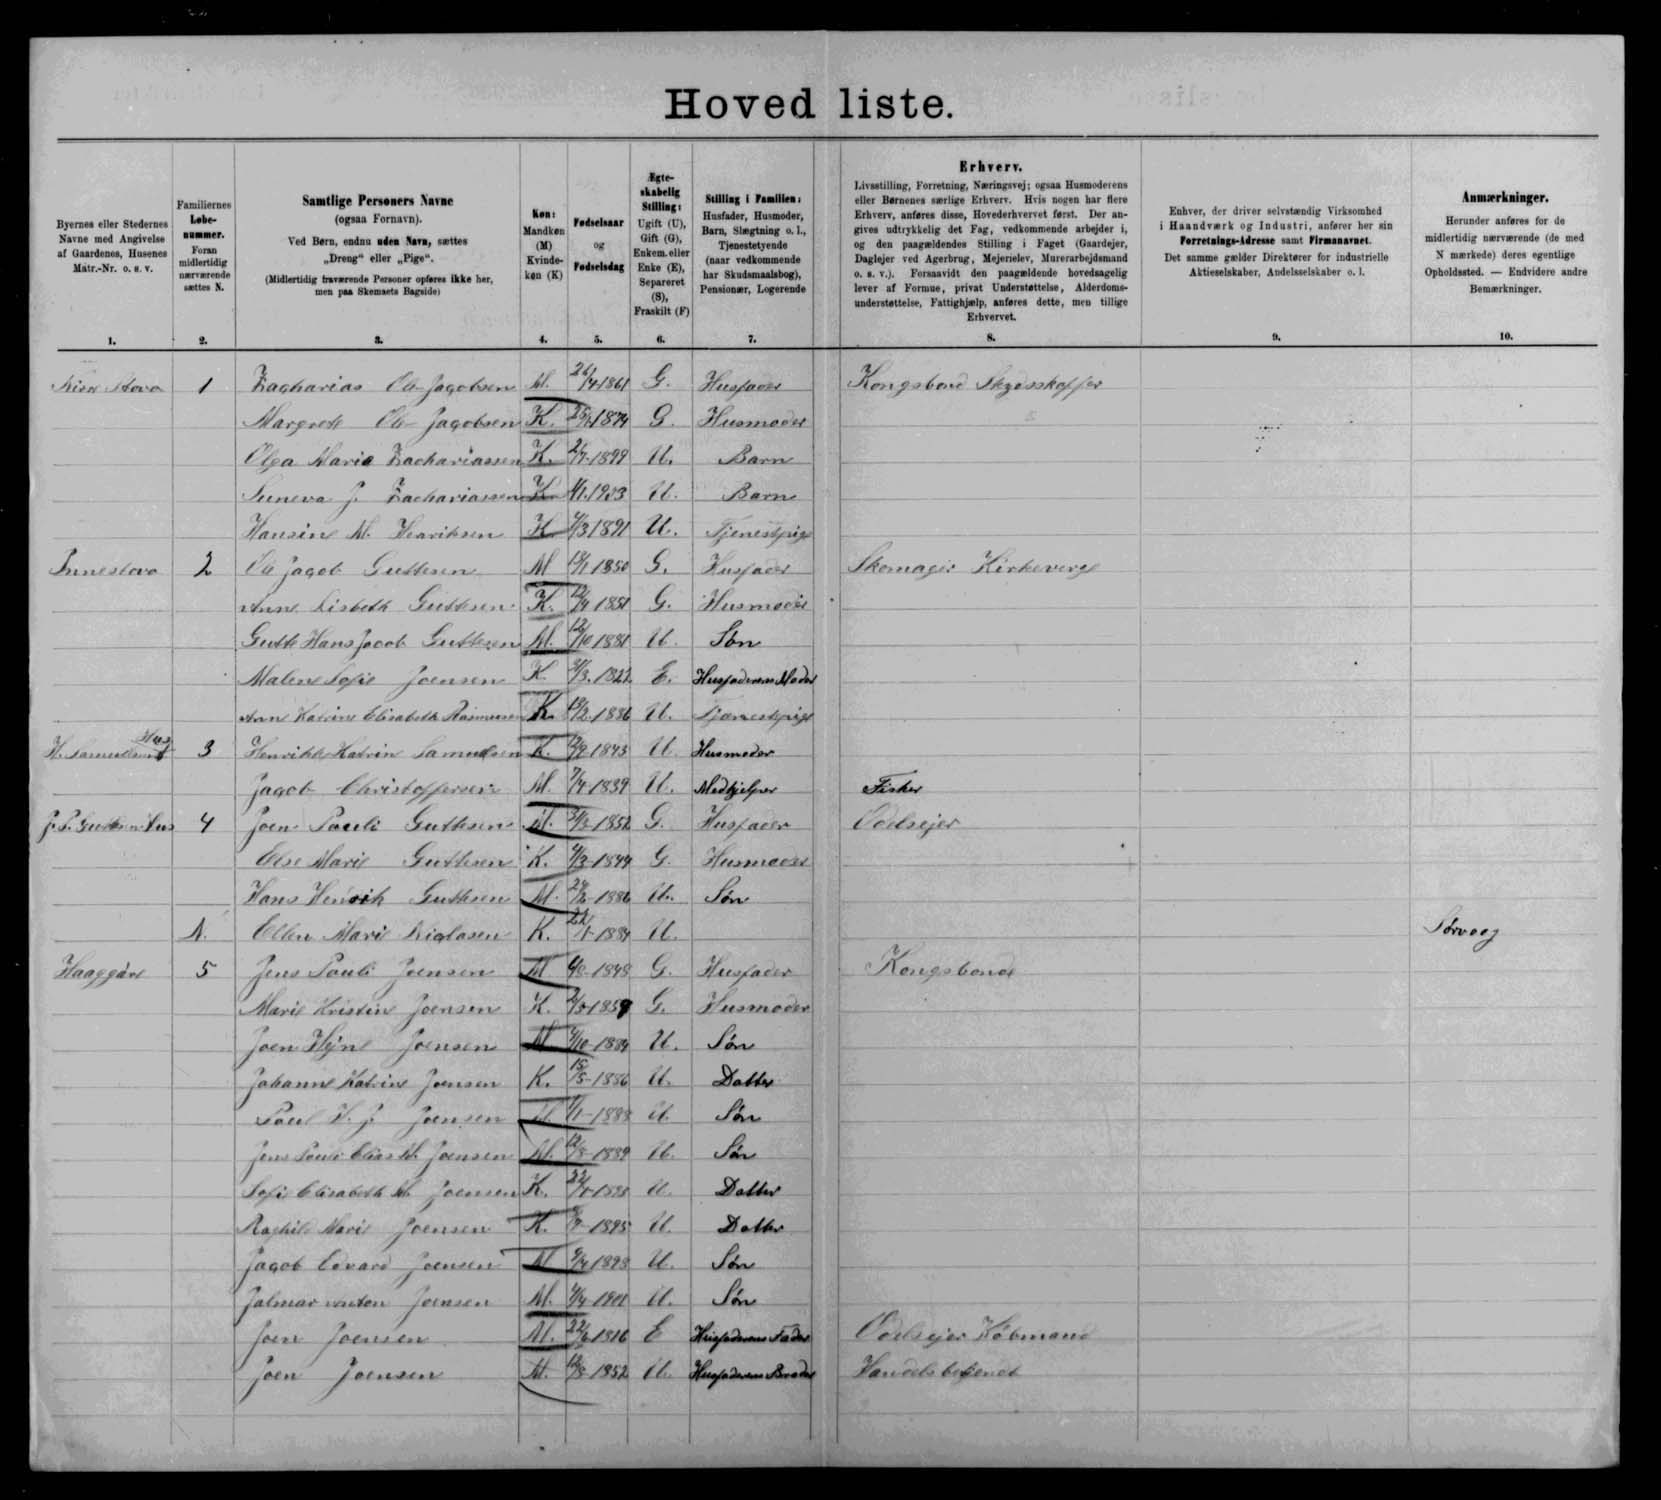 Hoved liste.
Byernes eller Stedernes Navne med Angivelse af Gaardenes, Husenes Matr.-Nr. o. s. v.
Familiernes Løbe-nummer. Foran midlertidig nærværende sættes N.
Samtlige Personers Navne
(ogsaa Fornavn).
Ved Børn, endnu uden Navn, sættes „Dreng“ eller „Pige“.
(Midlertidig fraværende Personer opføres ikke her, men paa Skemaets Bagside)
Køn: Mandkøn (M) Kvinde-køn (K)
Fødselsaar og Fødselsdag
Ægte-skabelig Stilling: Ugift (U), Gift (G), Enkem. eller Enke (E), Separeret (S), Fraskilt (F)
Stilling i Familien: Husfader, Husmoder, Barn, Slægtning o. l., Tjenestetyende (naar vedkommende har Skudsmaalsbog), Pensionær, Logerende
Erhverv.
Livsstilling, Forretning, Næringsvej; ogsaa Husmoderens
eller Børnenes særlige Erhverv. Hvis nogen har flere
Erhverv, anføres disse, Hovederhvervet først. Der an-
gives udtrykkelig det Fag, vedkommende arbejder i,
og den paagældendes Stilling i Faget (Gaardejer,
Daglejer ved Agerbrug, Mejerielev, Murerarbejdsmand
o. s. v.). Forsaavidt den paagældende hovedsagelig
lever af Formue, privat Understøttelse, Alderdoms-
understøttelse, Fattighjælp, anføres dette, men tillige
Erhvervet.
Enhver, der driver selvstændig Virksomhed
i Haandværk og Industri, anfører her sin
Forretnings-Adresse samt Firmanavnet.
Det samme gælder Direktører for industrielle
Aktieselskaber, Andelsselskaber o. l.
Anmærkninger.
Herunder anføres for de
midlertidig nærværende (de med
N mærkede) deres egentlige
Opholdssted. — Endvidere andre
Bemærkninger.
1. 2. 3. 4. 5. 6. 7. 8. 9. 10.
1 Zacharias Ole Jagobsen M. 1861 G. Husfader Kongsbond Skydsskaffer
Margrete Ole Jagobsen K. 1874 G. Husmoder
Olga Maria Zachariassen K. 1899 U. Barn
Suneva J. Zachariassen K 1903 U. Barn
Hansine M. Henriksen K 1891 U. Tjenestpige
Innestova 2 Ole Jagob Guttesen M 1850 G. Husfader Skomager Kirkeverge
Anne Lisbeth Guttesen K. 1851 G. Husmoder
Gutte Hans Jacob Guttesen M. 12/10 1881 U. Søn
Malene Sofie Joensen K. 1822 E. Husfaderens Moder
Anne Katrine Elisabeth Rasmussen K. 1886 U. Tjenestpige
H. Samuelsens Hus 3 Henrikke Katrin Samuelsen K. 1843 U Husmoder
Jagob Christoffersen M. 1839 U. Medhjelper Fisker
J. P. Guttesens Hus 4 Joen Pauli Guttesen M. 1852 G. Husfader Odelsejer
Else Marie Guttesen K. 1844 G. Husmoder
Hans Henrik Guttesen M. 1886 U. Søn
N. Ellen Marie Niclasen K. 1884 U. Sørvaag
Haaggård 5 Jens Pauli Joensen M 1848 G. Husfader Kongsbonde
Marie Kristine Joensen K. G. Husmoder
Joen Hejne Joensen M 1884 U. Søn
Johanne Katrine Joensen K. 15/5-1886 U. Datter
Poul H. J. Joensen M. 1888 U. Søn
Jens Pauli Elias M. Joensen M. 12/8-1889 U. Søn
Sofie Elisabeth M. Joensen K. U. Datter
Raghild Marie Joensen K. 1895 U. Datter
Jagob Edvard Joensen M 1898 U. Søn
Jalmar Anton Joensen M. 1901 U. Søn
Joen Joensen M. 22/6 1816 E Husfaderens Fader Odelsejer Købmand
Joen Joensen M. 12/8-1852 U. Husfaderens Broder Handelsbetjent